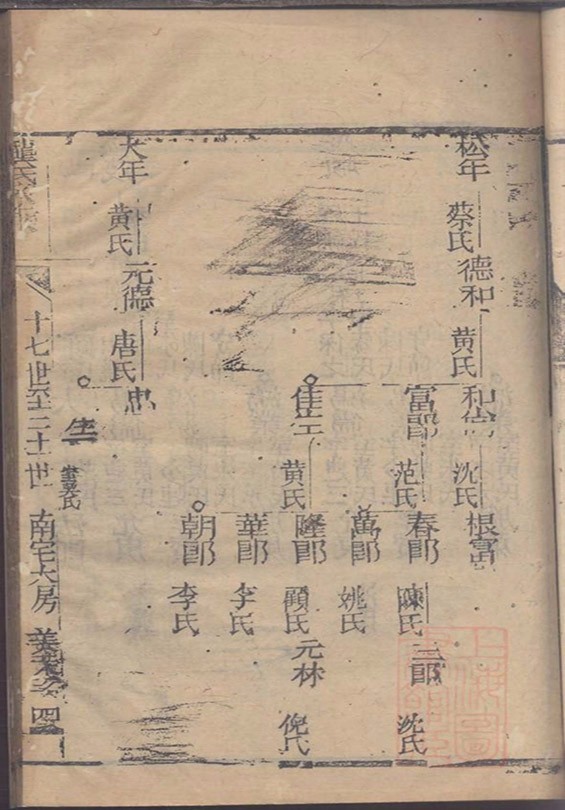 松年 蔡氏 德和 黄氏 和尙 沈氏 根富
富郎 范氏 春郎 陳氏 三郎 沈氏
萬郎 姚氏
黄氏 隆郎 顧氏 元林 倪氏
華郎 李氏
朝郎 李氏
大年 黄氏 元德 唐氏 忠
十七世至二十世 南宅大房